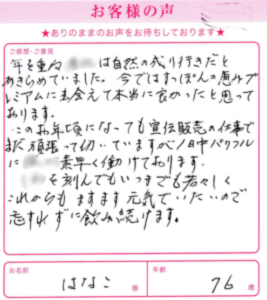 お客様の声
★ありのままのお声をお待ちしております★
ご感想・ご意見
年を重ね は自然の成り行きだと
あきらめていました。今ではすっぽんの恵みプ
レミアムに出会えて本当に良かったと思って
おります。
このお年頃になっても宣伝販売の仕事で
まだ頑張って働いていますが1日中パワフル
に 素早く働けております。
を刻んでもいつまでも若々しく
これからもますます元気でいたいので
忘れずに飲み続けます。
お名前
はなこ 様
年齢
76 歳